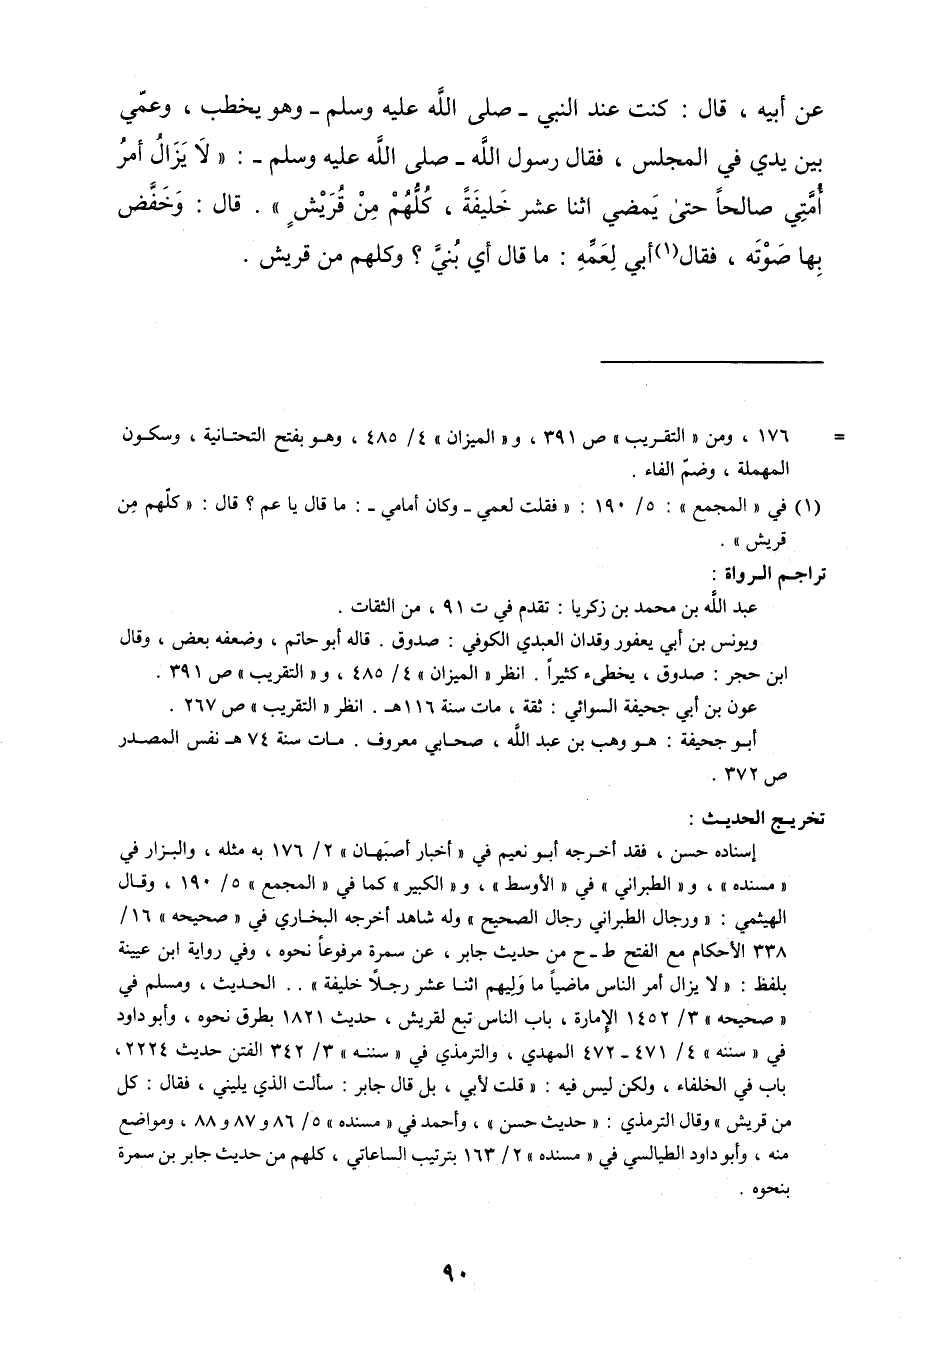 عن أبيه ، قال : كنت عند النبي ـ صلى اللَّه عليه وسلم ـ وهو يخطب ، وعمّي
بين يدي في المجلس ، فقال رسول اللَّه ـ صلى اللَّه عليه وسلم ـ : « لَا يَزَالُ أمرُ
أُمَّتِي صالحاً حتىٰ يَمضي اثنا عشر خَليفَةً ، كُلُّهُمْ مِنْ قُرَيْشٍ » . قال : وَخَفَّض
بِها صَوْتَه ، فقال(١) أبي لِعَمِّهِ : ما قال أي بُنيَّ ؟ وكلهم من قريش .
= ١٧٦ ، ومن « التقريب » ص ٣٩١ ، و« الميزان » ٤/ ٤٨٥ ، وهو بفتح التحتانية ، وسكون
المهملة ، وضمّ الفاء .
(١) في « المجمع » : ٥/ ١٩٠ : « فقلت لعمي ـ وكان أمامي ـ : ما قال يا عم ؟ قال : « كلّهم مِن
قريش » .
تراجم الرواة :
عبد اللَّه بن محمد بن زكريا : تقدم في ت ٩١ ، من الثقات .
ويونس بن أبي يعفور وقدان العبدي الكوفي : صدوق . قاله أبو حاتم ، وضعفه بعض ، وقال
ابن حجر : صدوق ، يخطىء كثيراً . انظر « الميزان » ٤/ ٤٨٥ ، و« التقريب » ص ٣٩١ .
عون بن أبي جحيفة السوائي : ثقة ، مات سنة ١١٦هـ . انظر « التقريب » ص ٢٦٧ .
أبو جحيفة : هو وهب بن عبد اللَّه ، صحابي معروف . مات سنة ٧٤ هـ نفس المصدر
ص ٣٧٢ .
تخريج الحديث :
إسناده حسن ، فقد أخرجه أبو نعيم في « أخبار أصبَهان » ٢/ ١٧٦ به مثله ، والبزار في
« مسنده » ، و« الطبراني » في « الأوسط » ، و« الكبير » كما في « المجمع » ٥/ ١٩٠ ، وقال
الهيثمي : « ورجال الطبراني رجال الصحيح » وله شاهد أخرجه البخاري في « صحيحه » ١٦/
٣٣٨ الأحكام مع الفتح ط ـ ح من حديث جابر ، عن سمرة مرفوعاً نحوه ، وفي رواية ابن عيينة
بلفظ : « لا يزال أمر الناس ماضياً ما وَليهم اثنا عشر رجلًا خليفة » . . الحديث ، ومسلم في
« صحيحه » ٣/ ١٤٥٢ الإمارة ، باب الناس تبع لقريش ، حديث ١٨٢١ بطرق نحوه ، وأبو داود
في « سننه » ٤/ ٤٧١ ـ ٤٧٢ المهدي ، والترمذي في « سننه » ٣/ ٣٤٢ الفتن حديث ٢٢٢٤ ،
باب في الخلفاء ، ولكن ليس فيه : « قلت لأبي ، بل قال جابر : سألت الذي يليني ، فقال : كل
من قريش » وقال الترمذي : « حديث حسن » ، وأحمد في « مسنده » ٥/ ٨٦ و ٨٧ و ٨٨ ، ومواضع
منه ، وأبو داود الطيالسي في « مسنده » ٢/ ١٦٣ بترتيب الساعاتي ، كلهم من حديث جابر بن سمرة
بنحوه .
٩٠